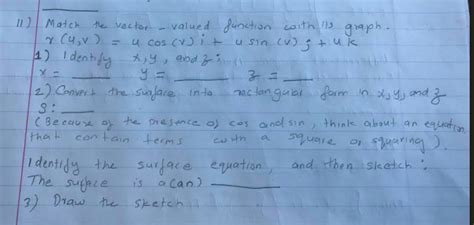 11) Match the vector - valued function with its graph.
r(u,v) = u cos(v) i + u sin(v) j + u k
1) Identify x, y, and z :
x = ____ y = ____ z = ____
2) Convert the surface into rectangular form in x, y, and z
S: ____
(Because of the presence of cos and sin, think about an equation
that contain terms with a square or squaring).
Identify the surface equation, and then sketch :
The surface is a(an) ____
3) Draw the sketch